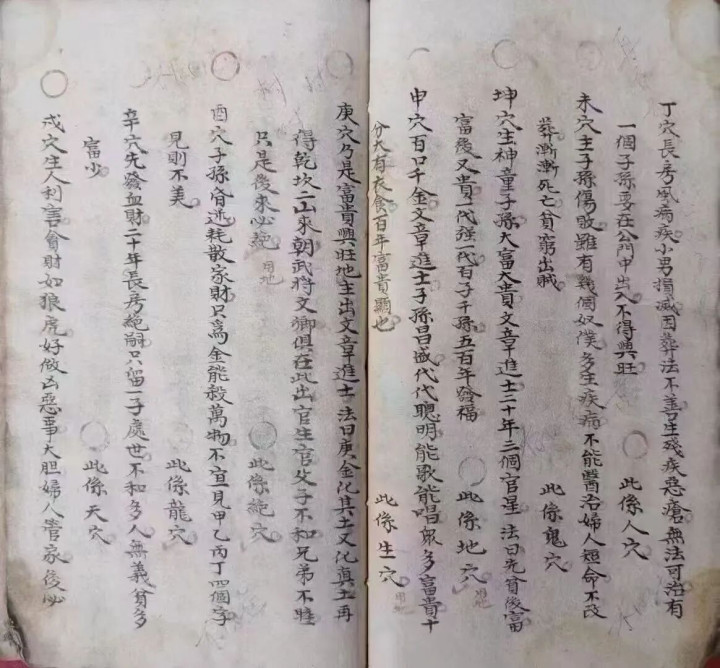 丁穴長房風病疾小男損滅因葬法不善生殘疾惡瘡無法可治有
一個子孫要在公門中出入不得興旺
此係人穴
未穴主子孫傷敗雖有幾個奴僕多生疾病不能醫治婦人短命不改
葬漸漸死亡貧窮出賊
此係鬼穴
坤穴生神童子孫大富大貴文章進士二十年三個官星 法曰先貧後富
富後又貴一代強一代百子千孫五百年發福
此係地穴
用地
申穴百口千金文章進士子孫昌盛代代聰明能歌能唱眾多富貴十
分大有衣食百年富貴顯也
此係生穴
用地
庚穴乃是富貴興旺地主出文章進士 法曰庚金化其土又化真土再
得乾坎二山來朝武將文卿俱在此出官生官父子不和兄弟不睦
只是後來必絕
用地
此係絕穴
酉穴子孫昏迷耗散家財只為金能殺萬物不宜見甲乙丙丁四個字
見則不美
此係龍穴
辛穴先發血財二十年長房絕嗣只留一子處世不和多人無義貧多
富少
此係天穴
戌穴生人利害貪財如狼虎好做凶惡事大胆婦人管家後必